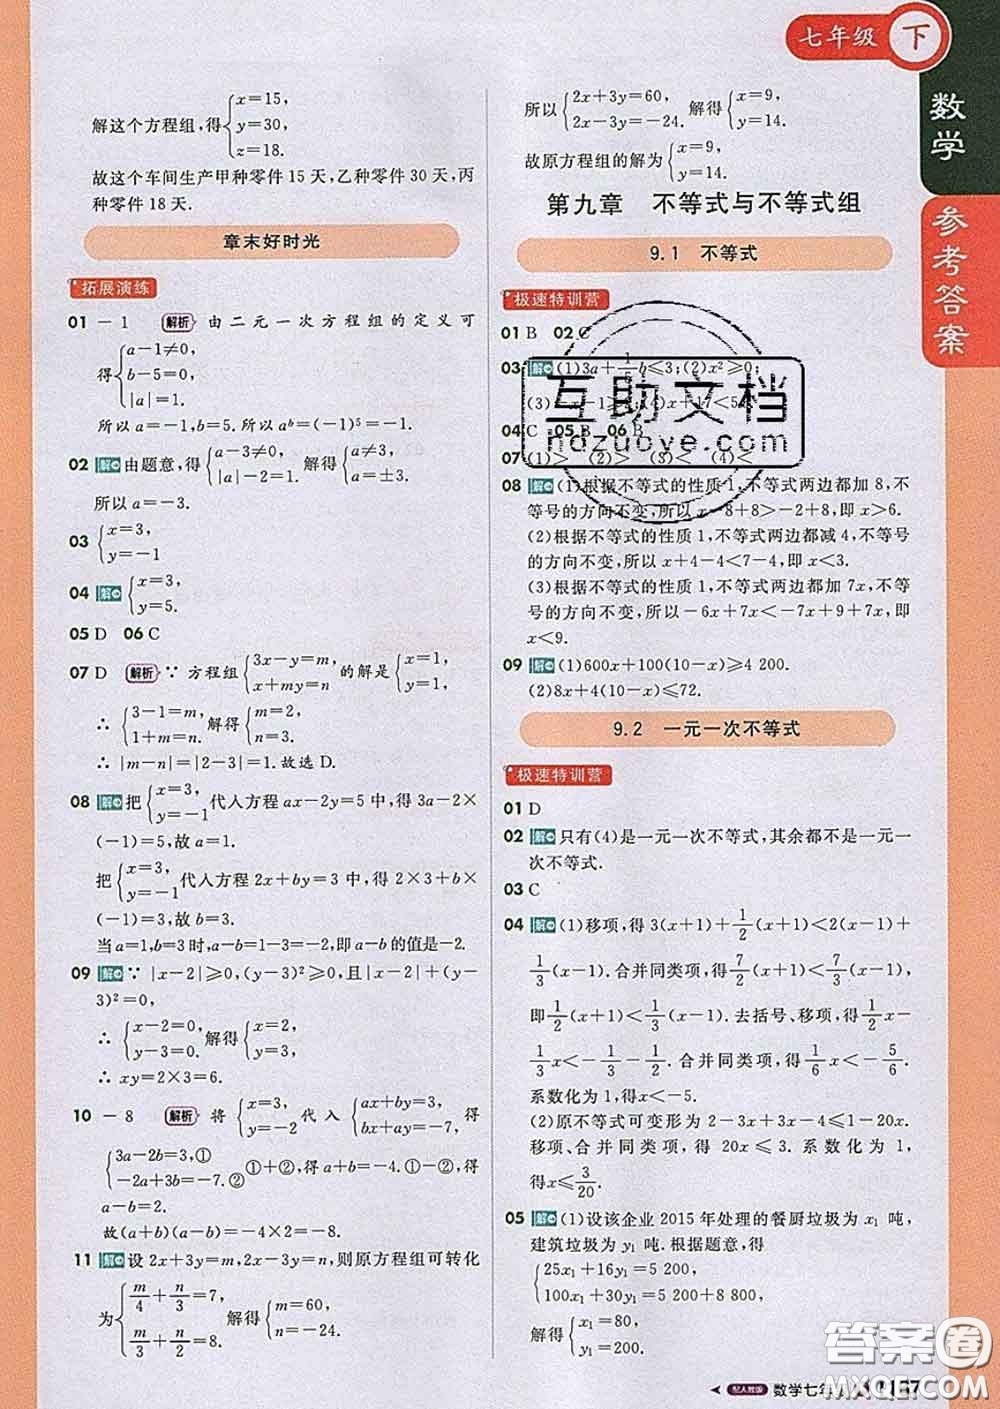 七年级 下
数学
参考答案
解这个方程组,得{x=15, y=30, z=18.
故这个车间生产甲种零件 15 天,乙种零件 30 天,丙
种零件 18 天.
章末好时光
拓展演练
01 -1 解析 由二元一次方程组的定义可
得{a-1≠0, b-5=0, |a|=1.
所以 a=-1,b=5.所以 aᵇ=(-1)⁵=-1.
02 解 由题意,得{a-3≠0, |a|-2=1. 解得{a≠3, a=±3.
所以 a=-3.
03 {x=3, y=-1
04 解 {x=3, y=5.
05 D 06 C
07 D 解析 ∵ 方程组{3x-y=m, x+my=n 的解是{x=1, y=1,
∴ {3-1=m, 1+m=n. 解得{m=2, n=3.
∴ |m-n|=|2-3|=1.故选 D.
08 解 把{x=3, y=-1 代人方程 ax-2y=5 中,得 3a-2×
(-1)=5,故 a=1.
把{x=3, y=-1 代人方程 2x+by=3 中,得 2×3+b×
(-1)=3,故 b=3.
当 a=1,b=3 时,a-b=1-3=-2,即 a-b 的值是-2.
09 解 ∵ |x-2|≥0,(y-3)²≥0,且|x-2|+(y-
3)²=0,
∴ {x-2=0, y-3=0. 解得{x=2, y=3,
∴ xy=2×3=6.
10 -8 解析 将{x=3, y=-2 代入{ax+by=3, bx+ay=-7, 得
{3a-2b=3,① -2a+3b=-7.② ①+②,得 a+b=-4.①-②,得
a-b=2.
故(a+b)(a-b)=-4×2=-8.
11 解 设 2x+3y=m,2x-3y=n,则原方程组可转化
为{m/4+n/3=7, m/3+n/2=8. 解得{m=60, n=-24.
所以{2x+3y=60, 2x-3y=-24. 解得{x=9, y=14.
故原方程组的解为{x=9, y=14.
第九章 不等式与不等式组
9.1 不等式
极速特训营
01 B 02 C
03 解 (1)3a+ b≤3;(2)x²≥0;
04 C 05 B 06 B
07 (1)> (2)> (3)< (4)<
08 解 (1)根据不等式的性质 1,不等式两边都加 8,不
等号的方向不变,所以 x-8+8>-2+8,即 x>6.
(2)根据不等式的性质 1,不等式两边都减 4,不等号
的方向不变,所以 x+4-4<7-4,即 x<3.
(3)根据不等式的性质 1,不等式两边都加 7x,不等
号的方向不变,所以-6x+7x<-7x+9+7x,即
x<9.
09 解 (1)600x+100(10-x)≥4 200.
(2)8x+4(10-x)≤72.
9.2 一元一次不等式
极速特训营
01 D
02 解 只有(4)是一元一次不等式,其余都不是一元一
次不等式.
03 C
04 解 (1)移项,得 3(x+1)+1/2(x+1)<2(x-1)+
1/3(x-1).合并同类项,得 7/2(x+1)<7/3(x-1),
即 1/2(x+1)<1/3(x-1).去括号、移项,得 1/2x-
1/3x<-1/3-1/2.合并同类项,得 1/6x<-5/6.
系数化为 1,得 x<-5.
(2)原不等式可变形为 2-3x+3x-4≤1-20x.
移项、合并同类项,得 20x≤3.系数化为 1,
得x≤3/20.
05 解 (1)设该企业 2015 年处理的餐厨垃圾为 x₁ 吨,
建筑垃圾为 y₁ 吨.根据题意,得
{25x₁+16y₁=5 200, 100x₁+30y₁=5 200+8 800,
解得{x₁=80, y₁=200.
互助文档
hdzuoye.com
配人教版 数学七年
答案圈